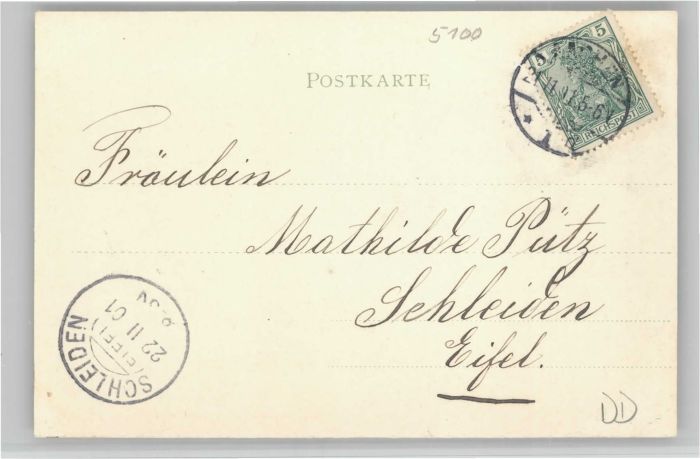 5100
5
REICHSPOST
POSTKARTE
Fräulein
Mathilde Pütz
Schleiden
Eifel.
SCHLEIDEN
(EIFEL)
22 11 01
DD